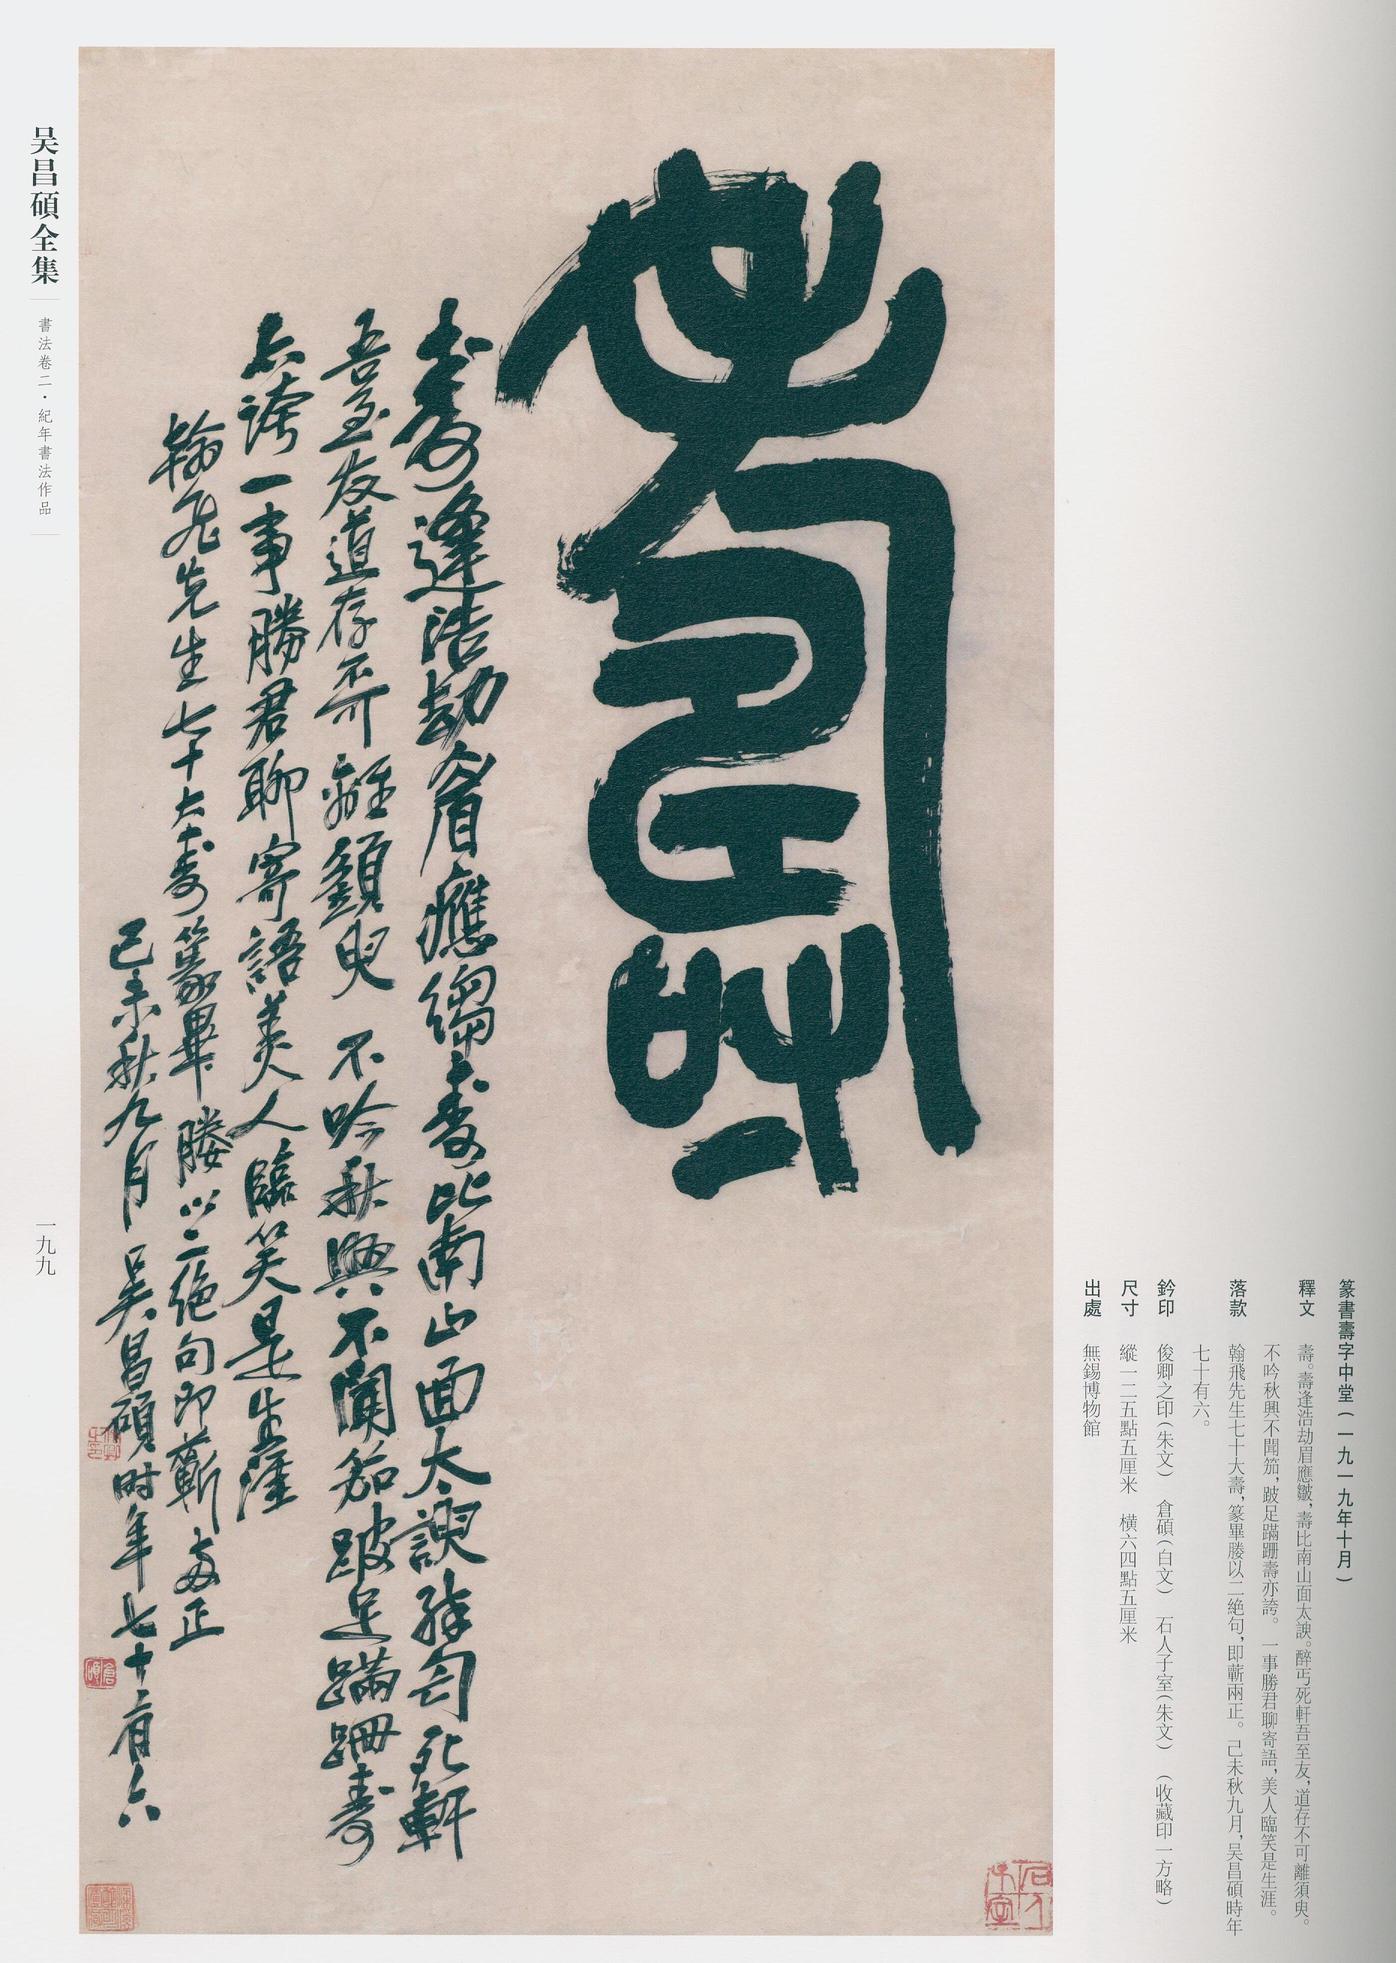 篆書壽字中堂（一九一九年十月）
釋文　壽。壽逢浩劫眉應皺，壽比南山面太諛。醉丐死軒吾至友，道存不可離須臾。
不吟秋興不聞笳，跛足蹣跚壽亦誇。一事勝君聊寄語，美人臨笑是生涯。
落款　翰飛先生七十大壽，篆畢媵以二絕句，即蘄兩正。己未秋九月，吳昌碩時年
七十有六。
鈐印　俊卿之印（朱文）　倉碩（白文）　石人子室（朱文）　（收藏印一方略）
尺寸　縱一二五點五厘米　橫六四點五厘米
出處　無錫博物館
壽
壽逢浩劫眉應縐壽比南山面太諛醉丐死軒
吾至友道存不可離須臾不吟秋興不聞笳跛足蹣跚壽
亦誇一事勝君聊寄語美人臨笑是生涯
翰飛先生七十大壽篆畢媵以二絕句即蘄兩正
己未秋九月吳昌碩時年七十有六
俊卿之印
倉碩
石人子室
吴昌碩全集
書法卷二·紀年書法作品
一九九